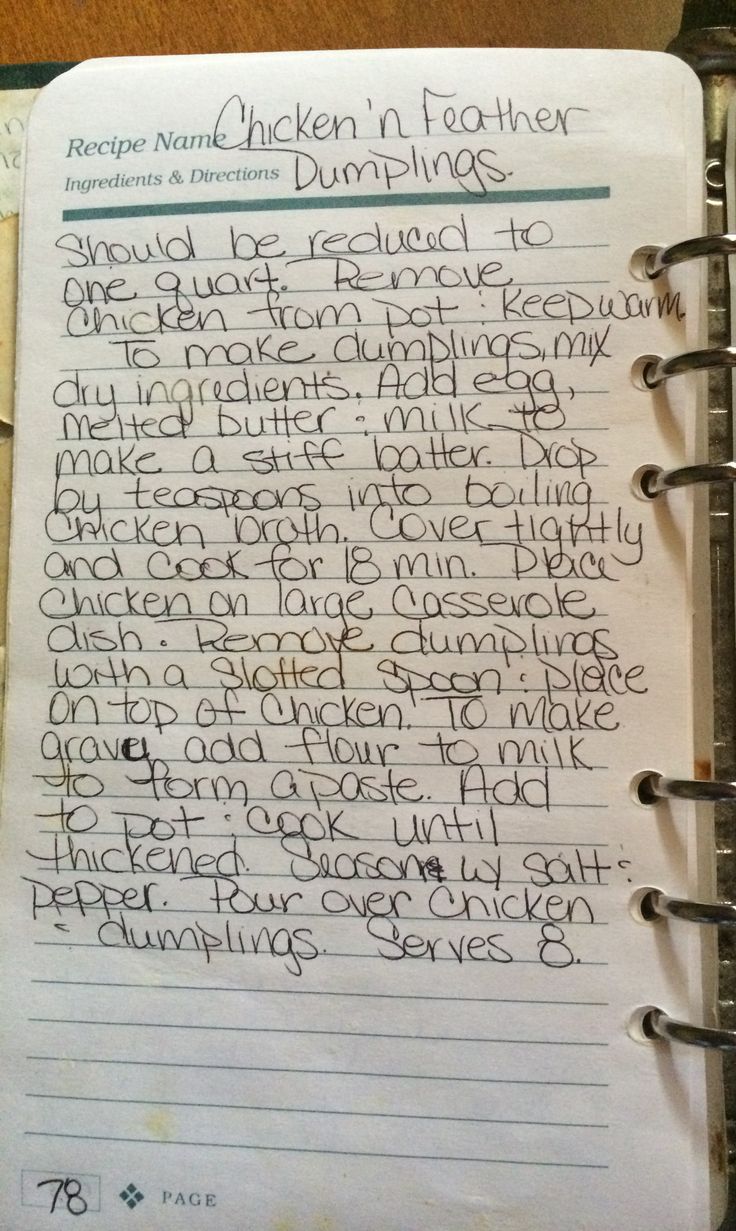 Recipe Name Chicken 'n Feather
Ingredients & Directions Dumplings.
Should be reduced to
one quart. Remove
Chicken from pot : Keep warm.
To make dumplings, mix
dry ingredients. Add egg,
melted butter : milk to
make a stiff batter. Drop
by teaspoons into boiling
Chicken broth. Cover tightly
and cook for 18 min. Place
Chicken on large Casserole
dish. Remove dumplings
with a Slotted Spoon : place
on top of Chicken. To make
gravey add flour to milk
to form a paste. Add
to pot : Cook until
thickened. Season w/ salt :
pepper. Pour over Chicken
: dumplings. Serves 8.
78 PAGE